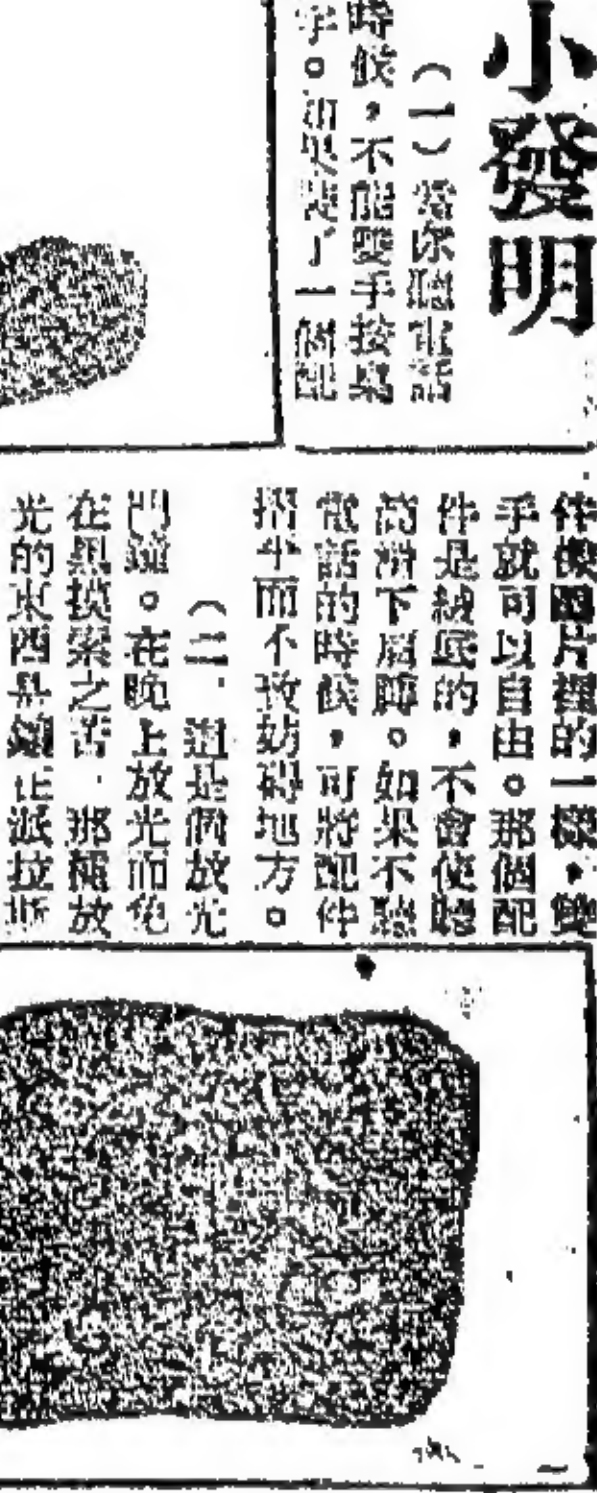 小發明
（一）當你聽電話
時候，不能雙手按桌
字。如果裝了一個配
件像圖片裡的一樣，雙
手就可以自由。那個配
件是絨底的，不會使聽
筒滑下肩膊。如果不聽
電話的時候，可將配件
摺平而不致妨碍地方。
（二．這是個放光
門鐘。在晚上放光而免
在黑摸索之苦．那種放
光的東西是